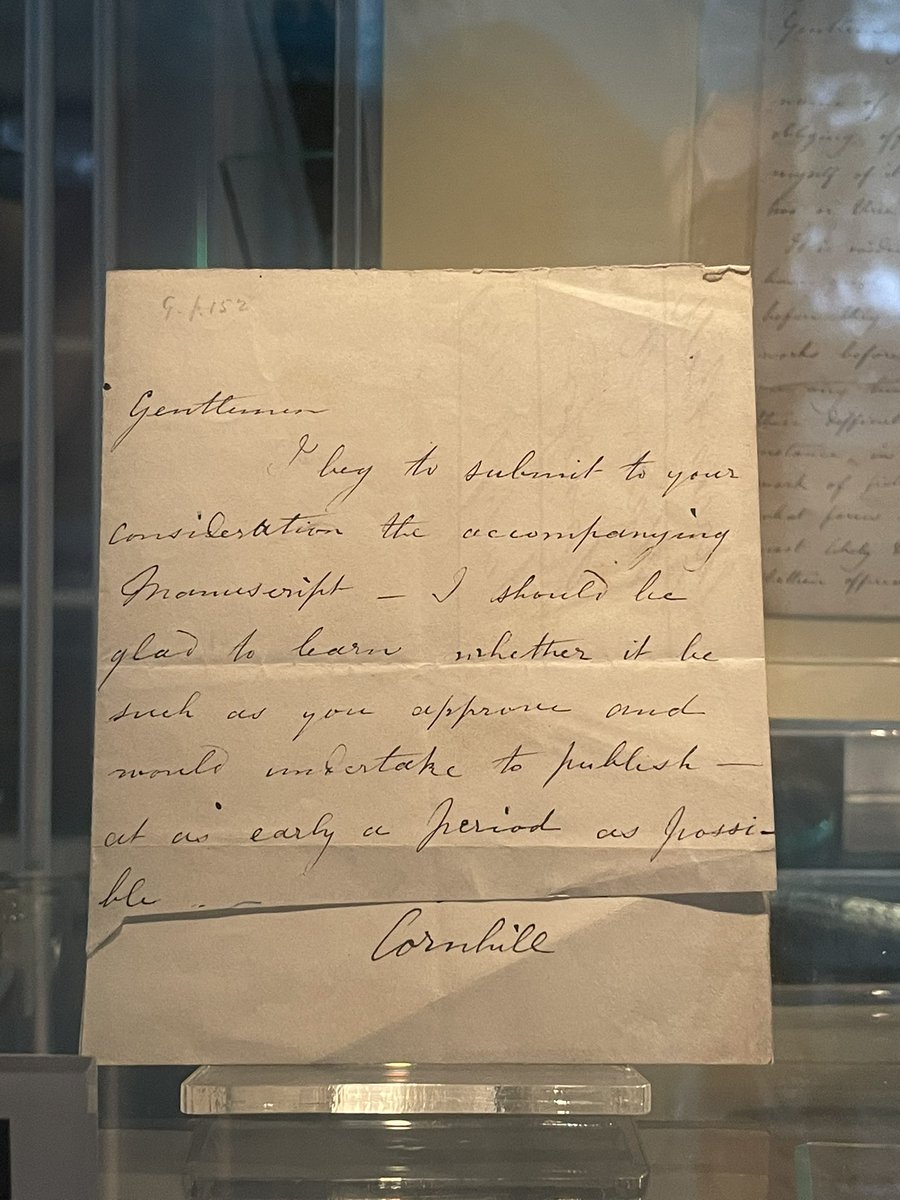 G. p. 152
Gentlemen
I beg to submit to your
consideration the accompanying
Manuscript – I should be
glad to learn whether it be
such as you approve and
would undertake to publish –
at as early a period as possi-
ble
Cornhill
name of
obliging
myself of
has
It is
before
work of
what form
most likely